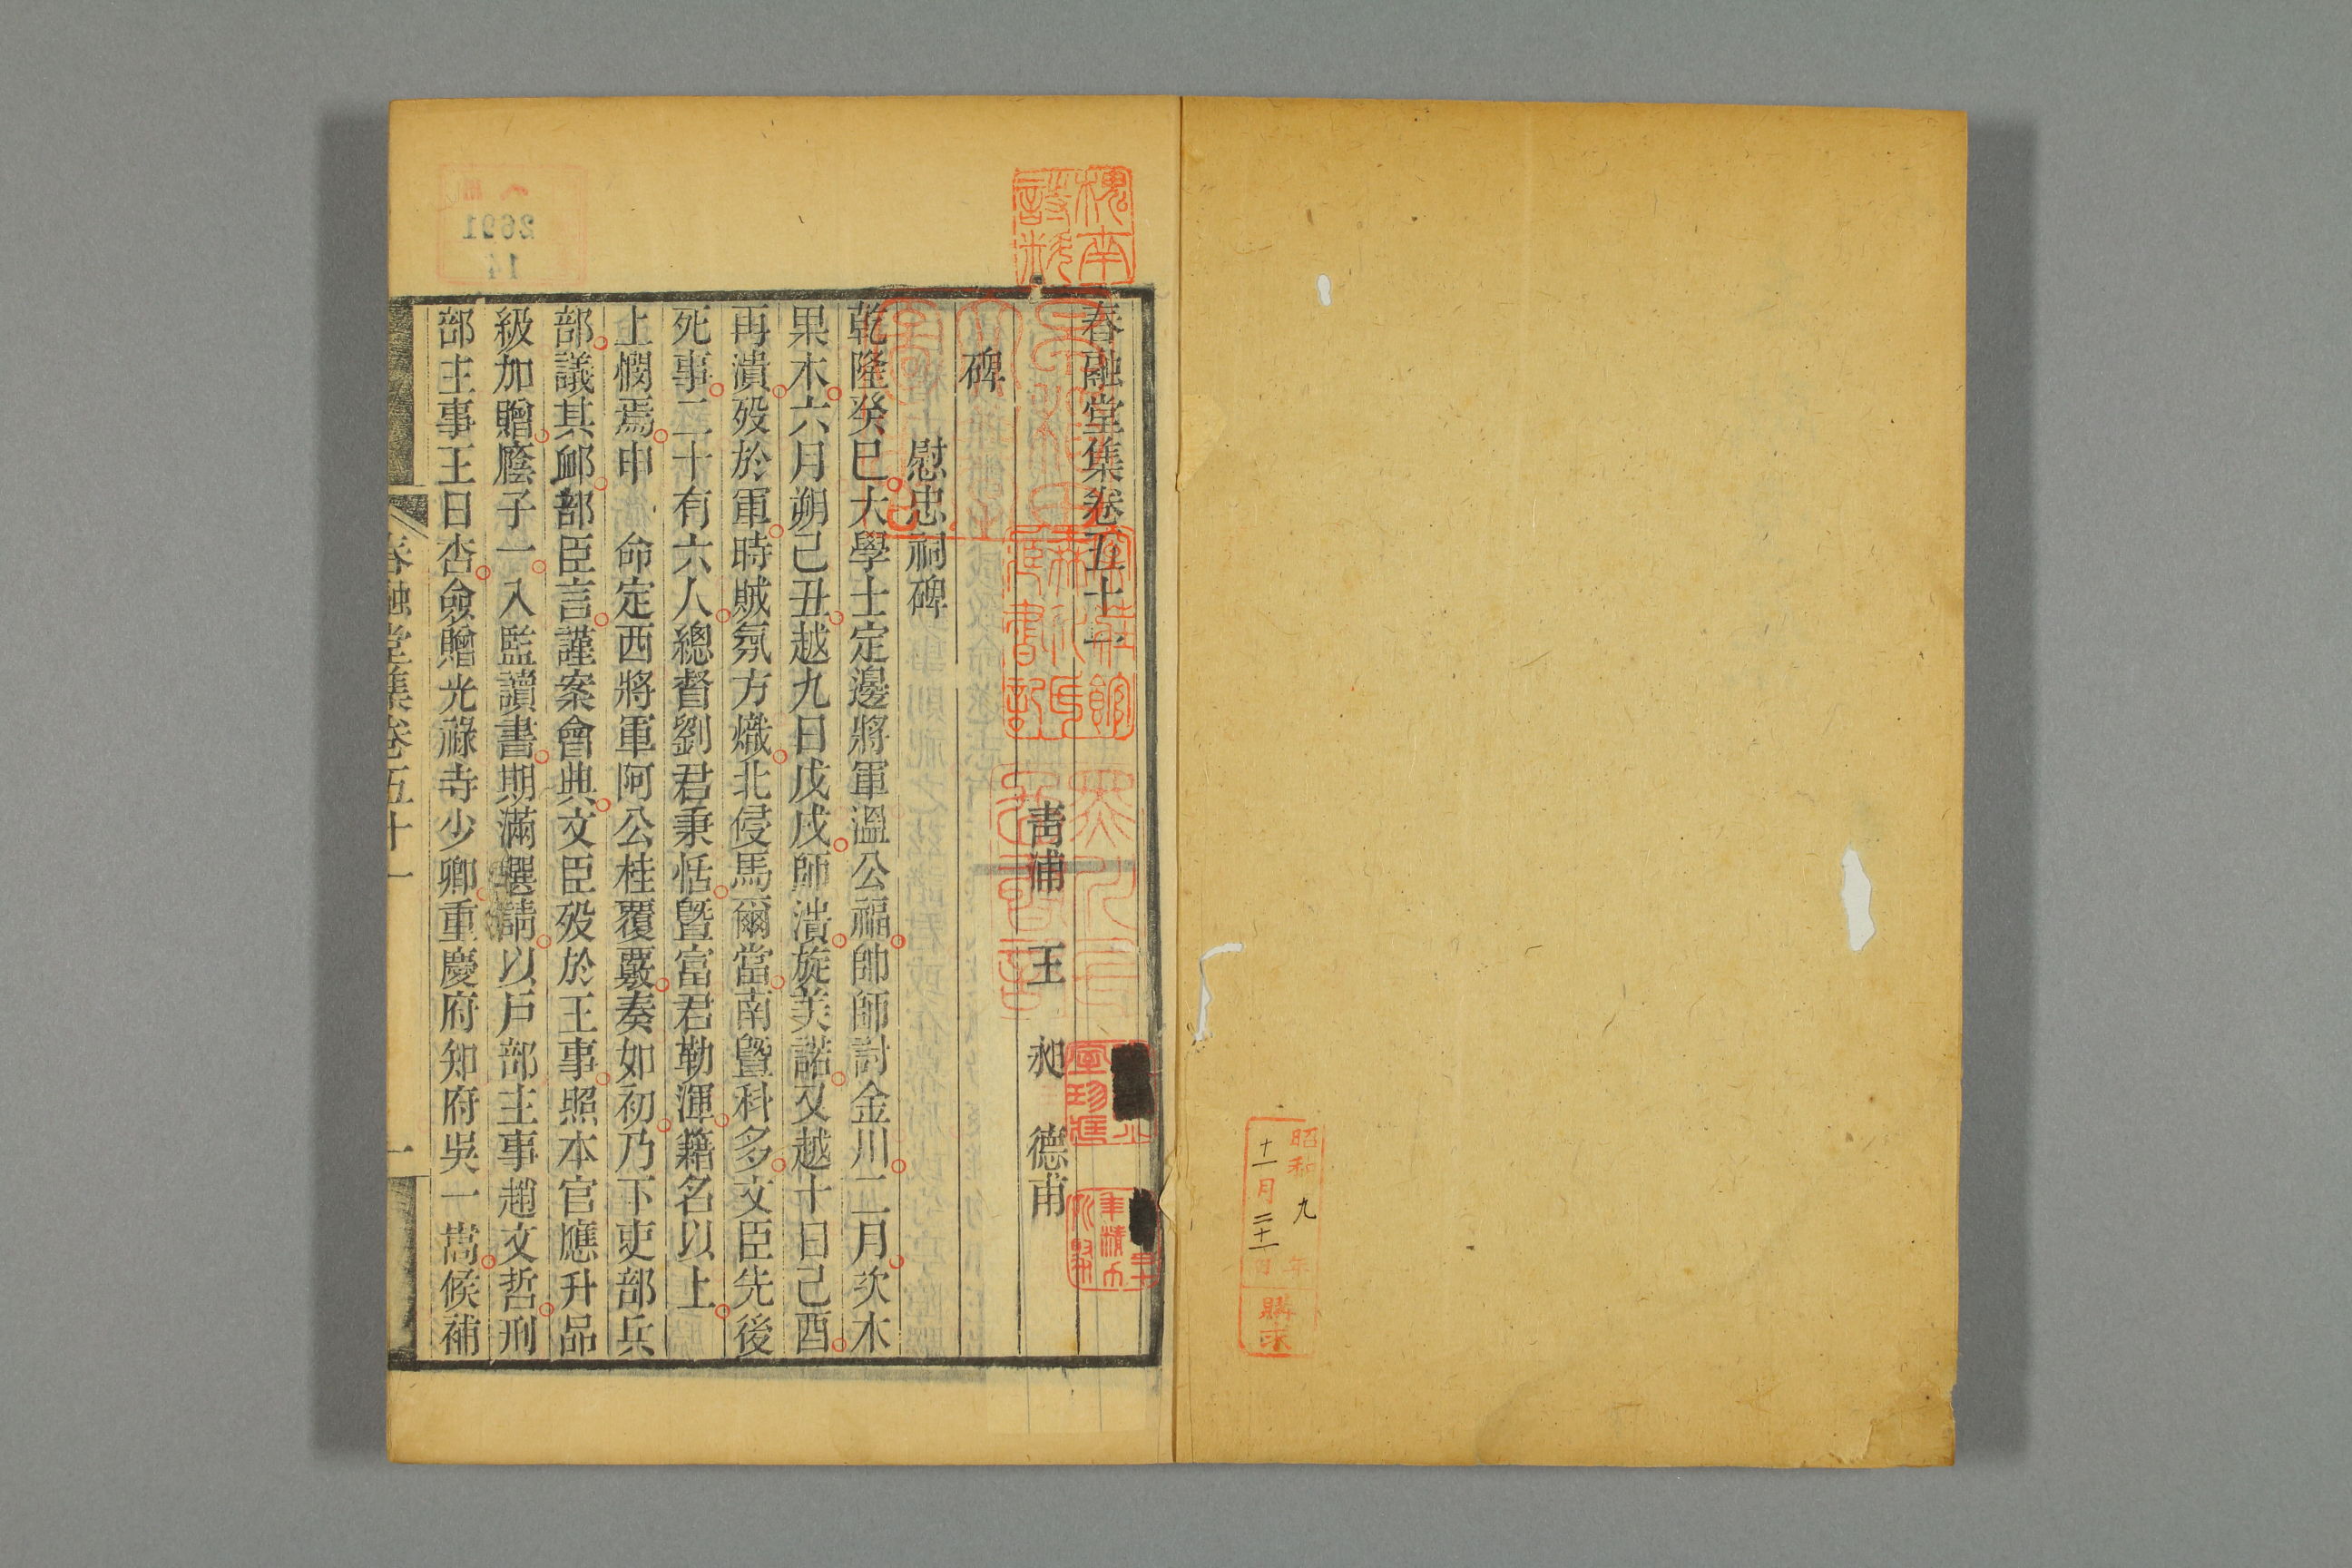 昭和九年
十一月二十一日
購求
槐南
詩料
春融堂集卷五十一
青浦 王 昶 德甫
碑
慰忠祠碑
乾隆癸巳大學士定邊將軍溫公福帥師討金川二月次木
果木六月朔己丑越九日戊戌師潰旋美諾又越十日己酉
再潰歿於軍時賊氛方熾北侵馬爾當南曁科多文臣先後
死事二十有六人總督劉君秉恬曁富君勒渾籍名以上
上憫焉申 命定西將軍阿公桂覆覈奏如初乃下吏部兵
部議其卹部臣言謹案會典文臣歿於王事照本官應升品
級加贈廕子一入監讀書期滿選請以戶部主事趙文哲刑
部主事王日杏僉贈光祿寺少卿重慶府知府吳一嵩候補
春融堂集卷五十一
一
2691
14